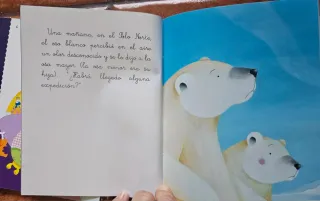 Una mañana, en el Polo Norte,
el oso blanco percibió en el aire
un olor desconocido y se lo dijo a la
osa mayor (la osa menor era su
hija): ¿Habrá llegado alguna
expedición?"